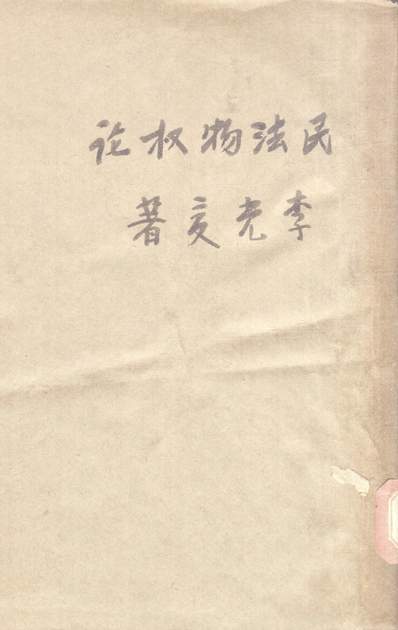 民法物权论
李光夏著